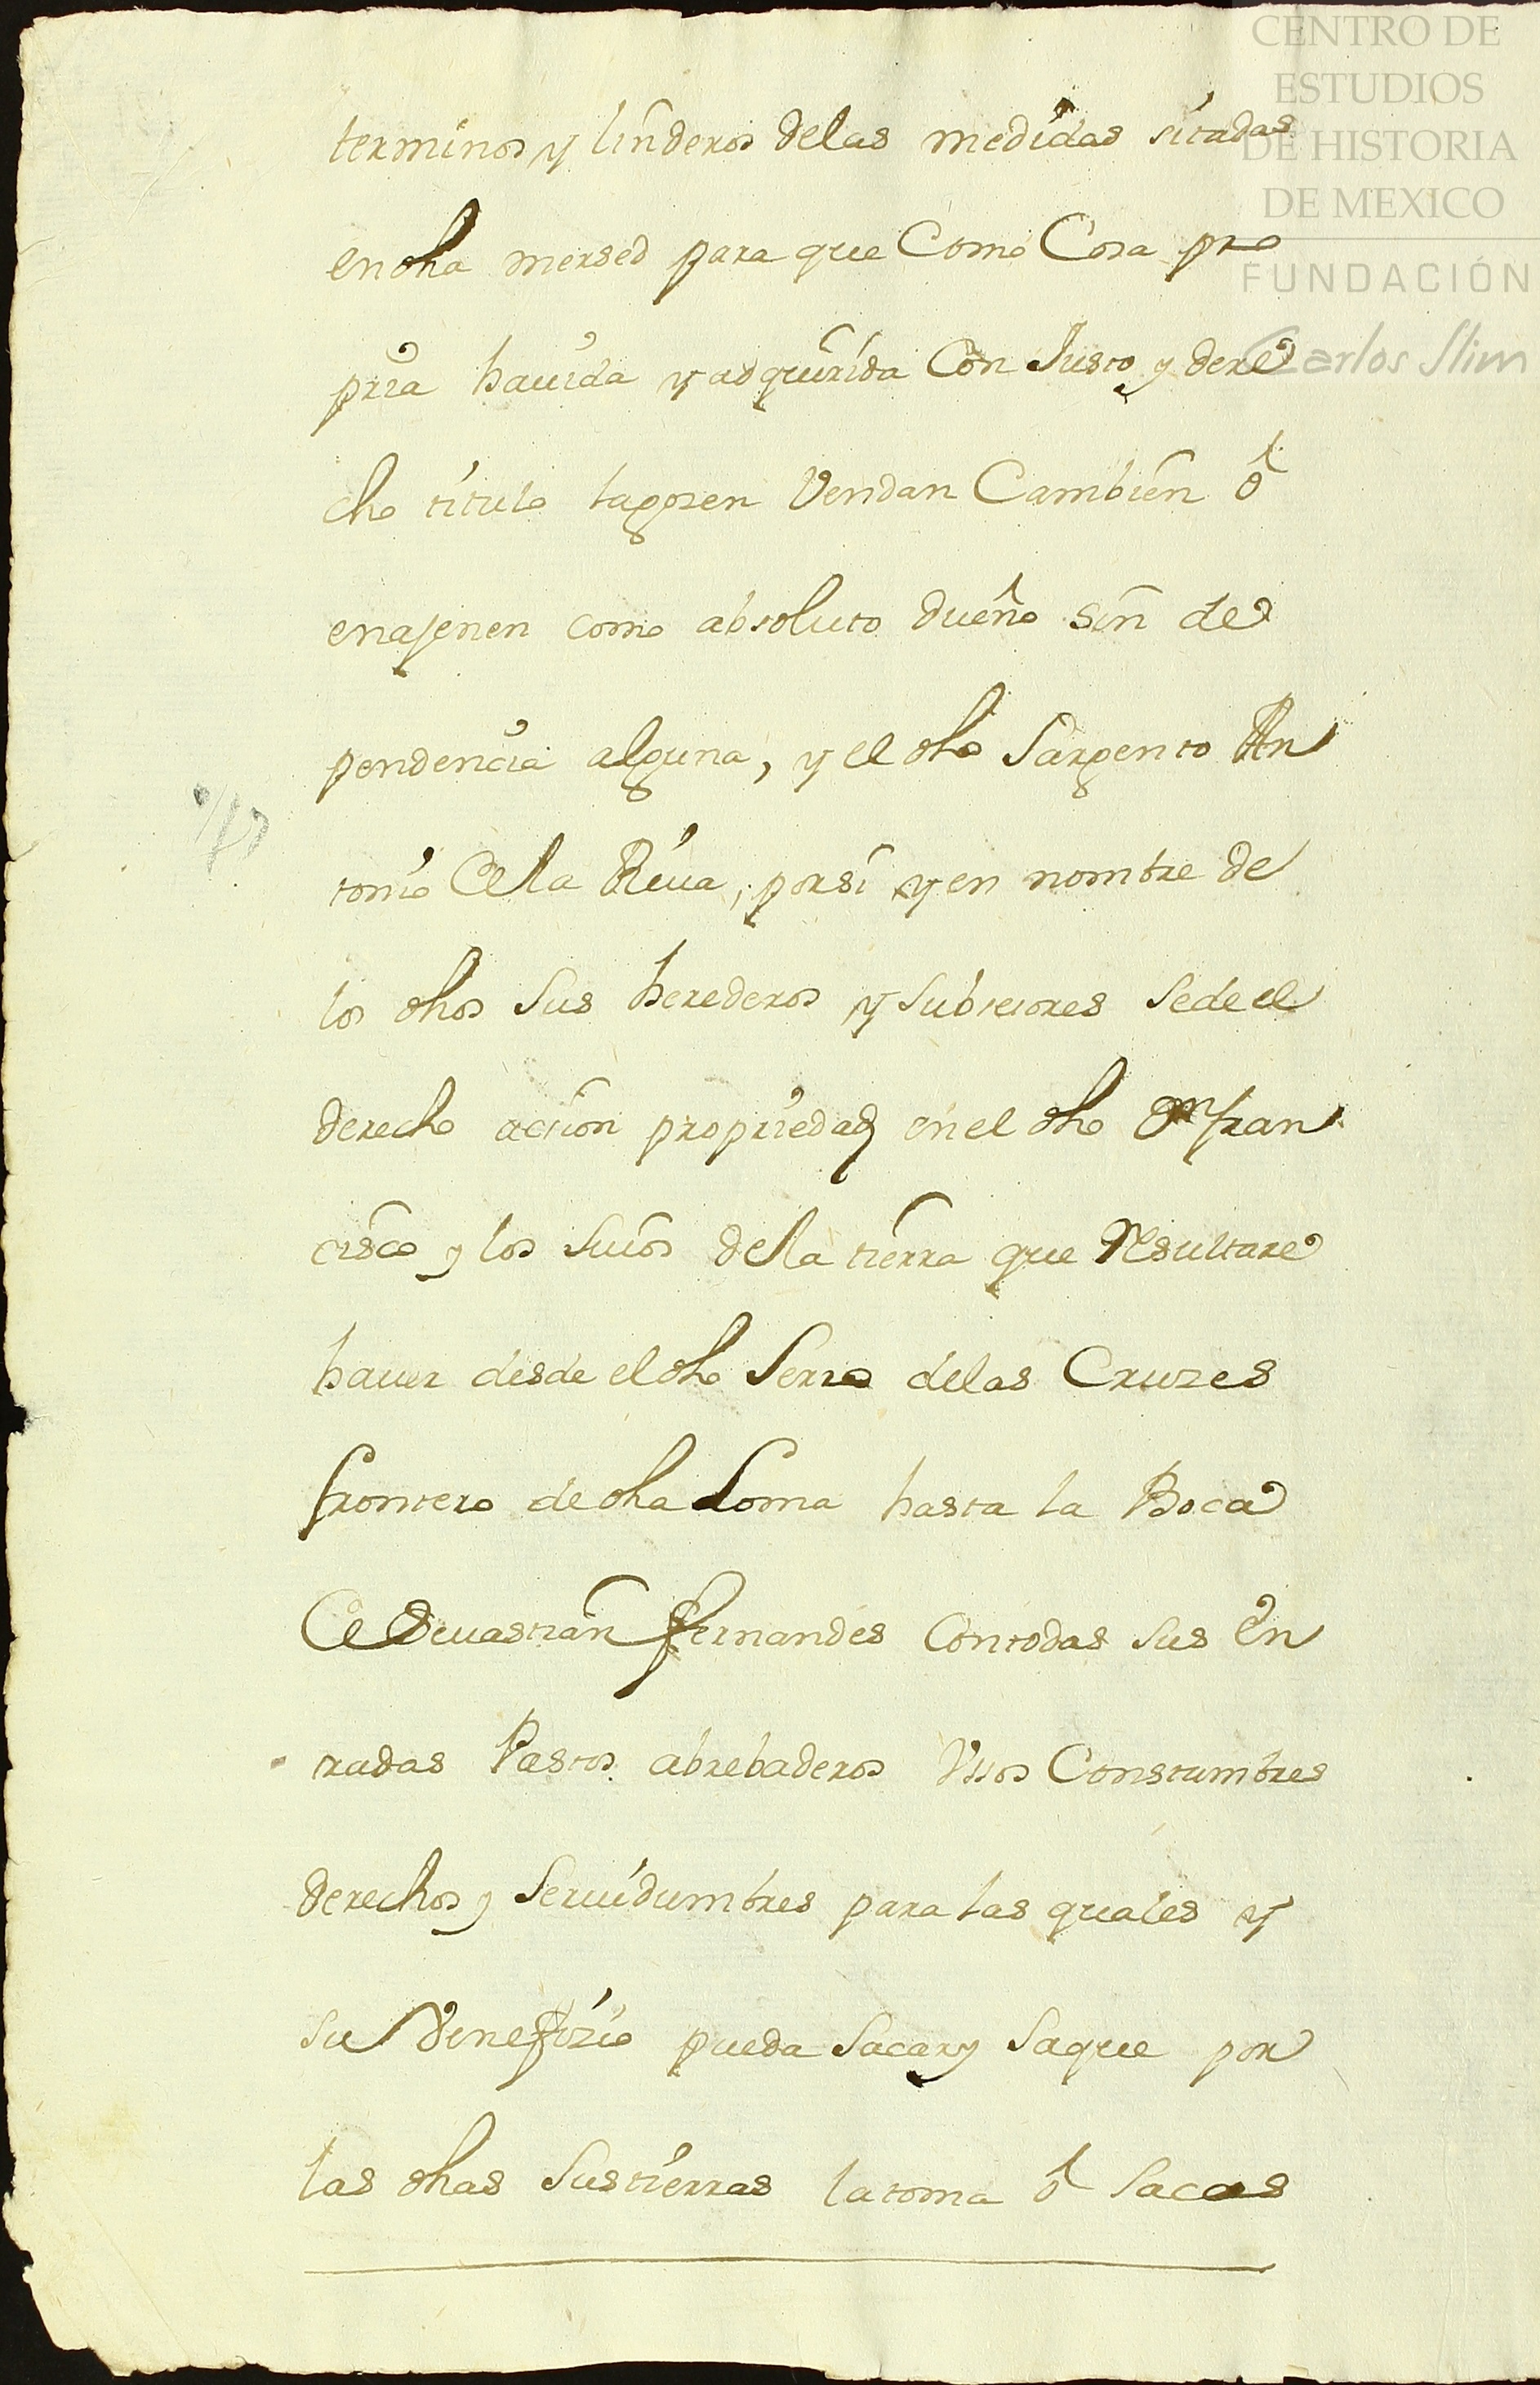 CENTRO DE
ESTUDIOS
DE HISTORIA
DE MEXICO
FUNDACIÓN
Carlos Slim
terminos y linderos delas medidas sitadas
en dha mersed para que Como Cosa pro
pria hauida y adquirida Con Justo y dere
cho titulo la gosen Vendan Cambien ó
enajenen como absoluto dueño sin de
pendencia alguna, y el dho Sargento An
tonio de la Riua, por si y en nombre de
los dhos sus herederos y subsesores sede el
derecho acsion propriedad en el dho Dn fran
cisco y los suios de la tierra que Resultare
hauer desde el dho Serro delas Cruzes
frontero de dha Loma hasta la Boca
de Seuastian fernandes Con todas sus en
tradas Pastos abrebaderos Vssos Constumbres
derechos y Seruidumbres para las quales y
su Venefizio pueda Sacar y Saque por
las dhas sus tierras la toma ó Sacas